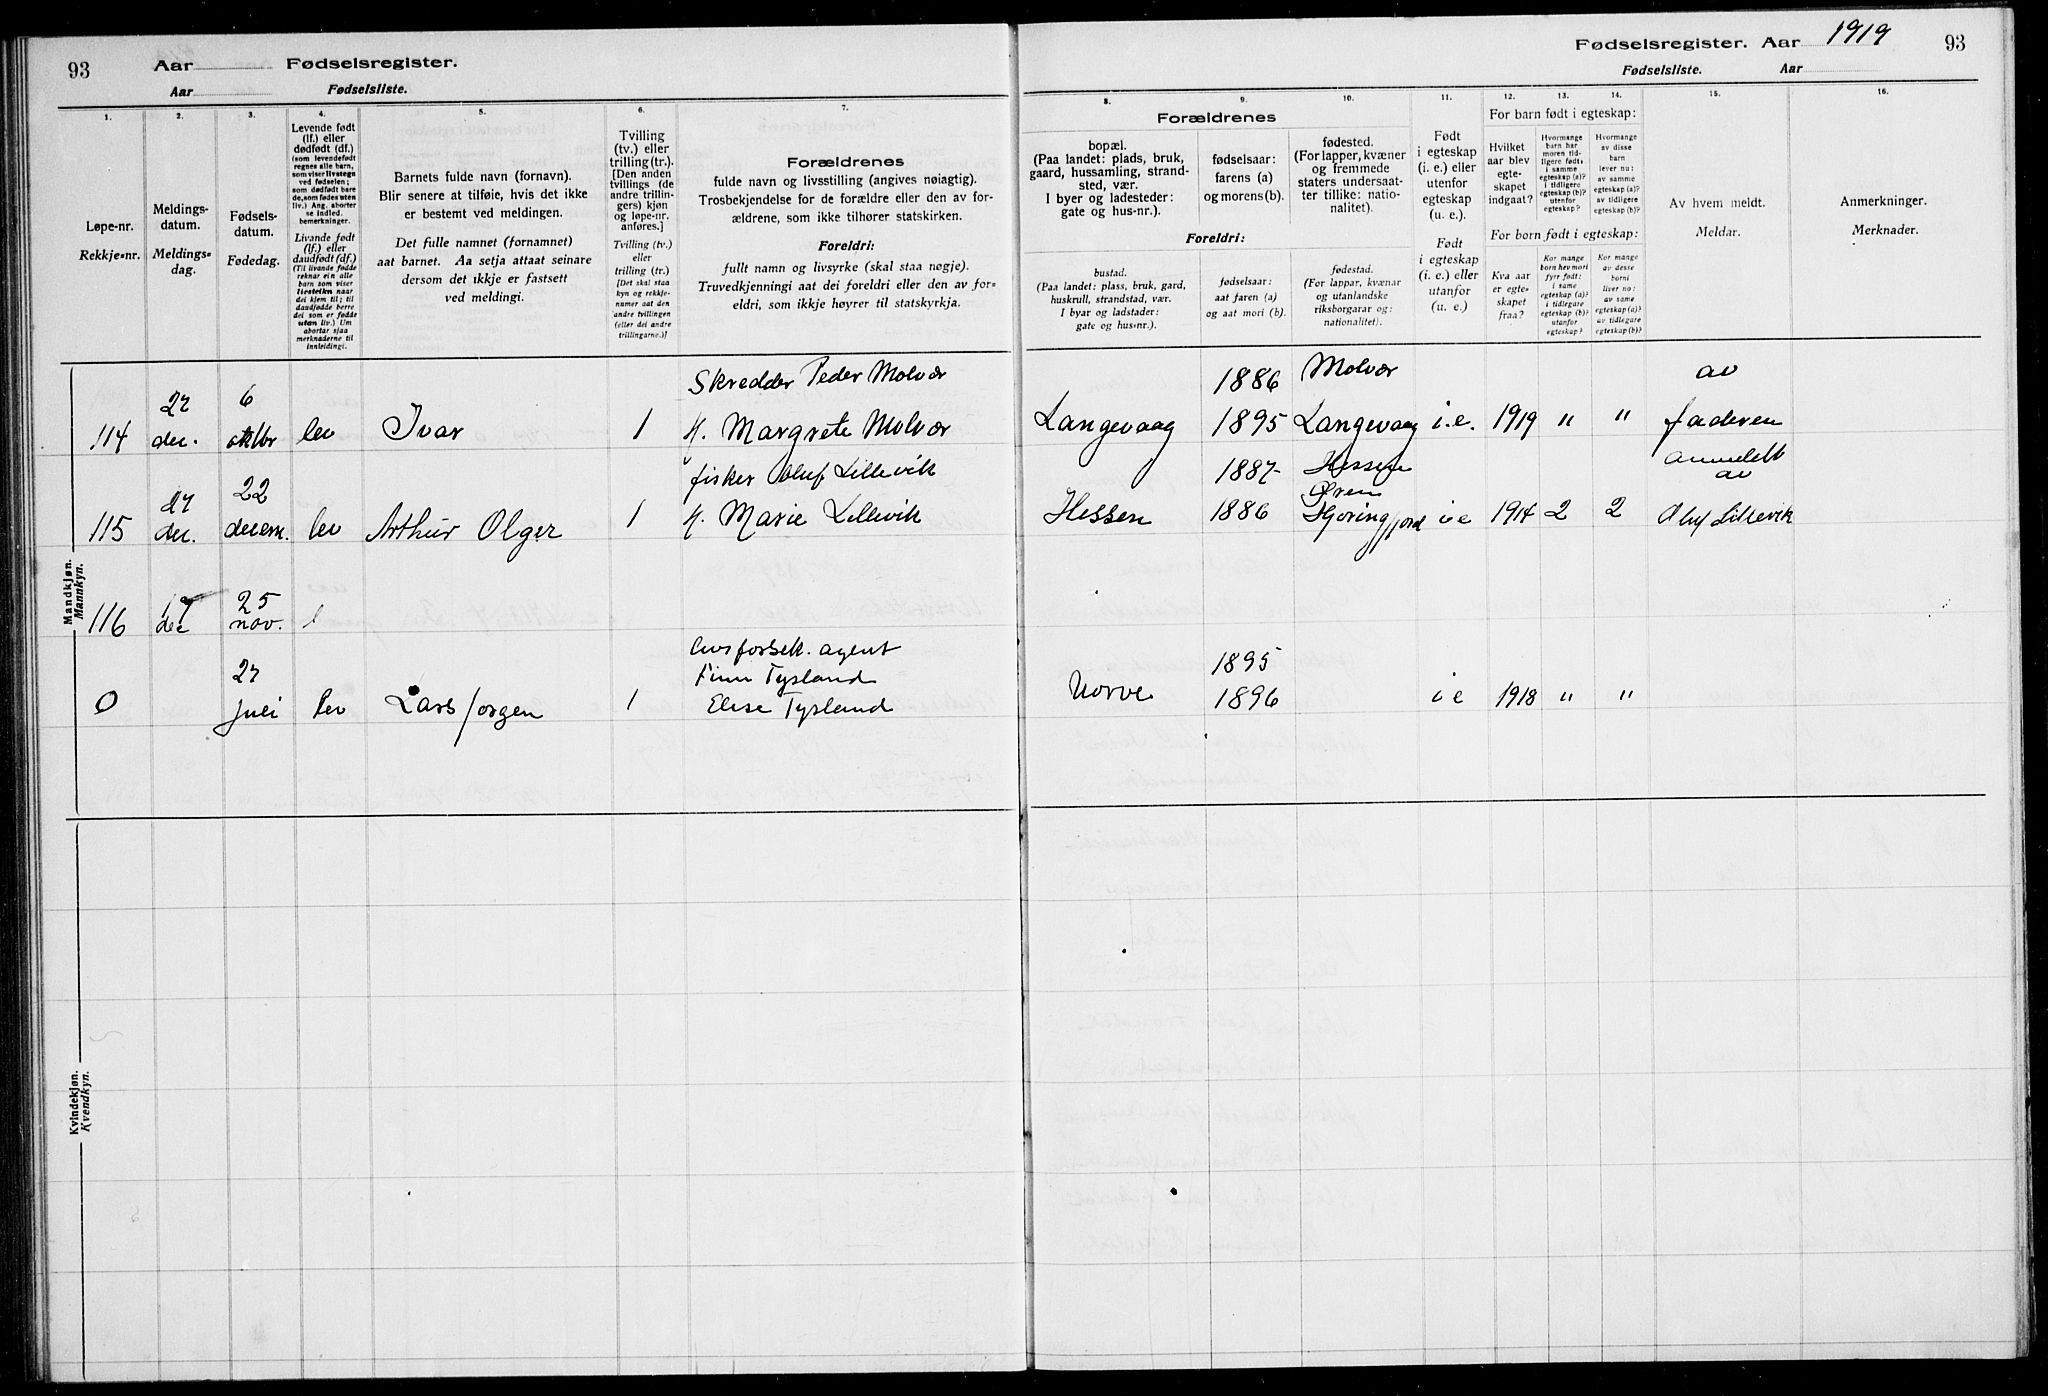 93
Aar
Fødselsregister.
Aar
Fødselsliste.
Fødselsregister. Aar 1919
93
Fødselsliste.
Aar
1.
2.
3.
4.
5.
6.
7.
8.
9.
10.
11.
12.
13.
14.
15.
16.
Løpe-nr.
Rekkje-nr.
Meldings-
datum.
Meldings-
dag.
Fødsels-
datum.
Fødedag.
Levende født
(lf.) eller
dødfødt (df.)
(som levendefødt
regnes alle barn,
som viser livstegn
ved fødselen;
som dødfødt bare
de, som fødes uten
liv.) Ang. aborter
se indled.
bemerkninger.
Livande født
(lf.) eller
daudfødt (df.)
(Til livande fødde
reknar ein alle
born som viser
livsteikn naar
dei kjem til; til
daudfødde berre
dei som er fødde
utan liv.) Um
abortar sjaa
merknaderne til
innleidingi.
Barnets fulde navn (fornavn).
Blir senere at tilføie, hvis det ikke
er bestemt ved meldingen.
Det fulle namnet (fornamnet)
aat barnet. Aa setja attaat seinare
dersom det ikkje er fastsett
ved meldingi.
Tvilling
(tv.) eller
trilling (tr.).
[Den anden
tvillings (de
andre trillin-
gers) kjøn
og løpe-nr.
anføres.]
Tvilling (tv.)
eller
trilling (tr.)
[Det skal staa
kyn og rekkje-
numer aat den
andre tvillingen
(eller dei andre
trillingarne.)]
Forældrenes
fulde navn og livsstilling (angives nøiagtig).
Trosbekjendelse for de forældre eller den av for-
ældrene, som ikke tilhører statskirken.
Foreldri:
fullt namn og livsyrke (skal staa nøgje).
Truvedkjenningi aat dei foreldri eller den av for-
eldri, som ikkje høyrer til statskyrkja.
Forældrenes
bopæl.
(Paa landet: plads, bruk,
gaard, hussamling, strand-
sted, vær.
I byer og ladesteder:
gate og hus-nr.).
fødselsaar:
farens (a)
og morens (b).
fødested.
(For lapper, kvæner
og fremmede
staters undersaat-
ter tillike: natio-
nalitet).
Foreldri:
bustad.
(Paa landet: plass, bruk, gard,
huskrull, strandstad, vær.
I byar og ladstader:
gate og hus-nr.).
fødselsaar:
aat faren (a)
og aat mori (b).
fødestad.
(For lappar, kvænar
og utanlandske
riksborgarar og:
nationalitet).
Født
i egteskap
(i. e.) eller
utenfor
egteskap
(u. e.).
Født
i egteskap
(i. e.) eller
utanfor
(u. e.)
For barn født i egteskap:
Hvilket
aar blev
egte-
skapet
indgaat?
Hvormange
barn har
moren tid-
ligere født,
i samme
egteskap (a)?
i tidligere
egteskap (b)?
utenfor
egteskap?
Hvormange
av disse
barn
lever nu:
av samme
egteskap (a)?
av tidligere
egteskap (b)?
For born født i egteskap:
Kva aar
er egte-
skapet
fraa?
Kor mange
born hev mori
fyrr født:
i same
egteskap (a)?
i tidlegare
egteskap (b)?
utanfor
egteskap?
Kor mange
av desse
borni
liver no:
av same
egteskap (a)?
av tidlegare
egteskap (b)?
Av hvem meldt.
Meldar.
Anmerkninger.
Merknader.
Mandkjøn.
Mannkyn.
Skredder Peder Molvær 1886 Molvær av
114 27 dec. 6 oktbr lev Ivar 1 H. Margrete Molvær Langevaag 1895 Langevaag i.e. 1919 " " faderen
fisker Oluf Lillevik 1887 Hessen anmeldt av
115 27 dec. 22 decem. lev Arthur Olger 1 H. Marie Lillevik Hessen 1886 i e 1914 2 2 Oluf Lillevik
116 dec 25 nov. l
agent
Finn Tysland 1895
0 27 Juli lev Lars Jørgen 1 Elise Tysland Norve 1896 i e 1918 " "
Kvindekjøn.
Kvendkyn.